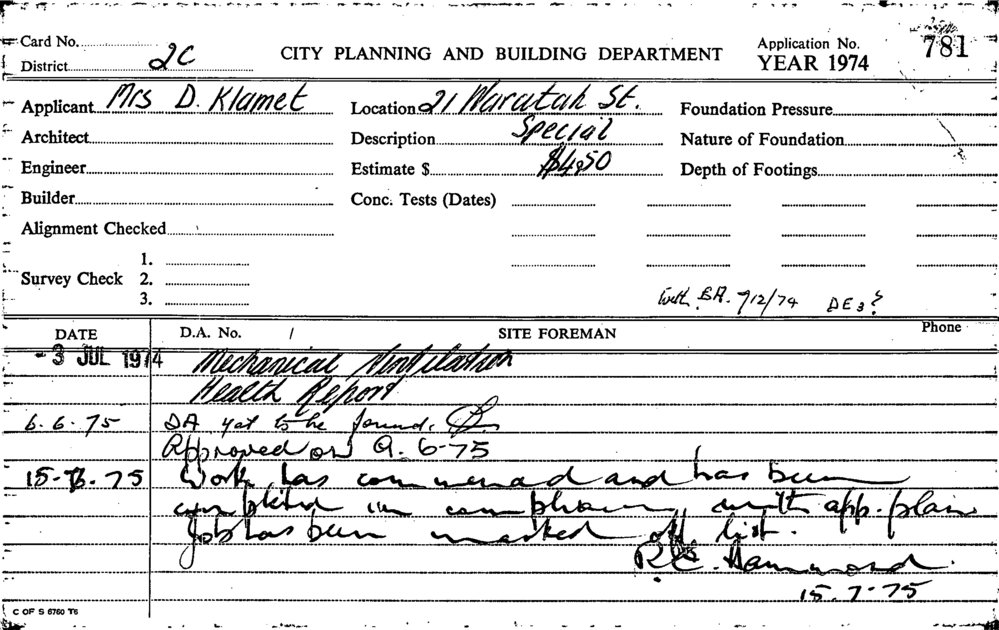 Card No.
District 2C
CITY PLANNING AND BUILDING DEPARTMENT
Application No. 781
YEAR 1974
Applicant Mrs D. Klamet
Location 21 Waratah St.
Foundation Pressure
Architect
Description Special
Nature of Foundation
Engineer
Estimate $ $450
Depth of Footings
Builder
Conc. Tests (Dates)
Alignment Checked
Survey Check 1.
2.
3.
with BA. 9/12/74 DE3?
DATE
D.A. No. /
SITE FOREMAN
Phone
- 3 JUL 1974 Mechanical Ventilation
Health Report
6.6.75 DA yet to be found.
Approved on 9.6-75
15-7.75 Work has commenced and has been
completed in compliance with app. plan
Job has been marked off list.
R.C. Hammond.
15.7-75
C OF S 6760 T6